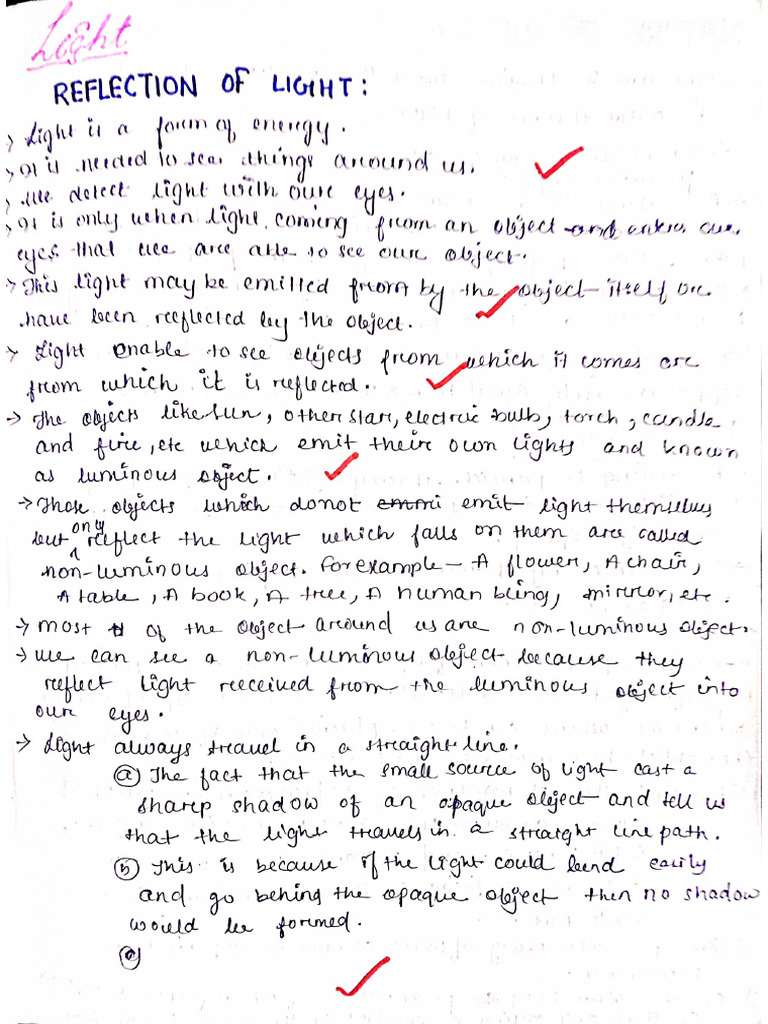 Light
REFLECTION OF LIGHT:
→ Light is a form of energy.
→ It is needed to see things around us.
→ We detect light with oure eyes.
→ It is only when light coming from an object and enters our
eyes that we are able to see our object.
→ This light may be emitted from by the object itself or
have been reeflected by the object.
→ Light enable to see objects from which it comes or
from which it is reflected.
→ The objects like sun, other stars, electric bulb, torch, candle
and fire, etc which emit their own lights and known
as luminous object.
→ Those objects which donot emmi emit light themselves
but only reflect the light which falls on them are called
non-luminous object. For example - A flower, A chair,
A table, A book, A tree, A human bling, mirror, etc.
→ most of the object around us are non-luminous object.
→ we can see a non-luminous object because they
reflect light received from the luminous object into
our eyes.
→ Light always travel in a straight line.
(a) The fact that the small source of light cast a
sharp shadow of an opaque object and tell us
that the light travels in a straight line path.
(b) This is because if the light could bend easily
and go behing the opaque object then no shadow
would be formed.
(c)